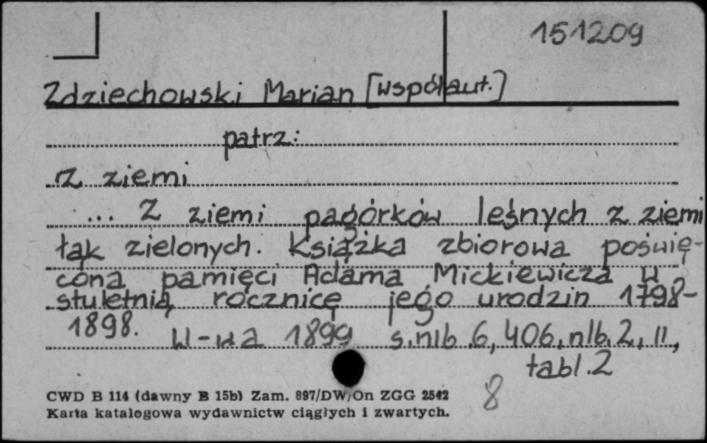 151209
Zdziechowski Marian [współaut.]
patrz:
Z ziemi
... Z ziemi pagórków leśnych z ziemi
łąk zielonych. Książka zbiorowa poświę-
cona pamięci Adama Mickiewicza w
stuletnią rocznicę jego urodzin 1798-
1898. W-wa 1899 s.nlb.6, 406, nlb.2, il.,
tabl.2
8
CWD B 114 (dawny B 15b) Zam. 897/DW/On ZGG 2542
Karta katalogowa wydawnictw ciągłych i zwartych.